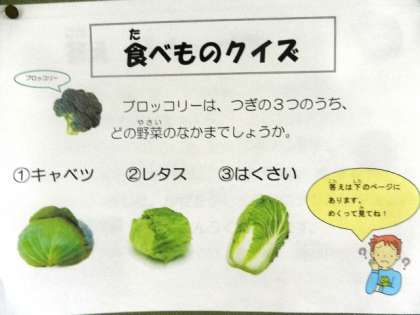 食べものクイズ
ブロッコリー
ブロッコリーは、つぎの３つのうち、
どの野菜のなかまでしょうか。
①キャベツ ②レタス ③はくさい
答えは下のページに
あります。
めくって見てね！